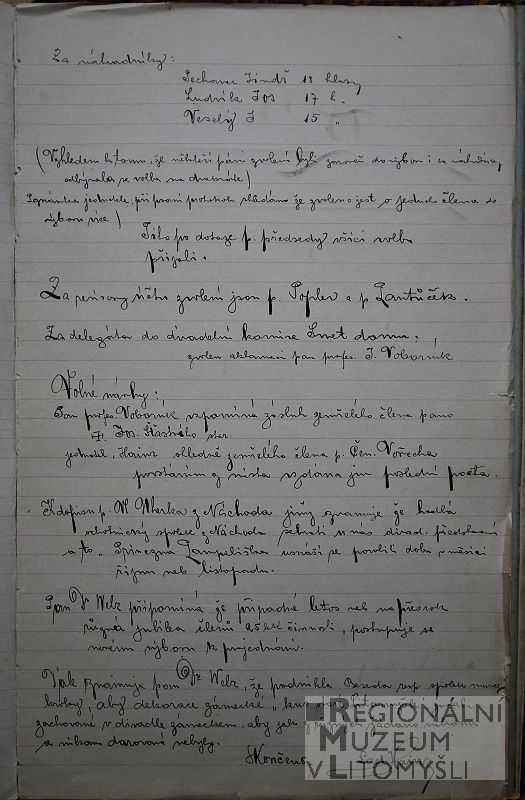 Za náhradníky:
Pechanec Jindř 18 hlasy
Ludvík Jos 17 h.
Veselý J 15 „
(Vzhledem k tomu, že někteří páni zvoleni byli zároveň do výboru i za náhradníky
odbývala se volba na dvakráte)
Poznámka jednatele, při psaní protokolu shledáno že zvoleno jest o jednoho člena do
výboru více)
Tito po dotaze p. předsedy všici volbu
přijali.
Za revisory účtu zvoleni jsou p. Popler a p Lantůček.
Za delegáta do divadelní komise Smet domu,
zvolen aklamací pan profes. J. Voborník
Volné návrhy:
Pan profes. Voborník vzpomíná zásluh zemřelého člena pana
Jos. Šťastného star
jednatel, Hainz ohledně zemřelého člena p. Čen. Vořecha
povstáním z místa vzdána jim poslední pocta.
K dopisu p. z Náchoda jímž oznamuje že hodlá
ochotnický spolek z Náchoda sehrati u nás divad. představení
a to „Princezna Pampeliška usnáší se povoliti dobu v měsíci
říjnu neb listopadu.
Pan Dr Welz připomíná že případné letos neb na přesrok
různá jubilea členů 25 leté činnosti, postupuje se
novému výboru k projednání.
Však oznamuje pan Dr Welz, že podnikla Beseda resp. spolku
kroky, aby dekorace zámecké
zachované v divadle zámeckém, aby jak
a nikam darované nebyly.
Skončeno Lad Hainz
REGIONÁLNÍ
MUZEUM
V LITOMYŠLI